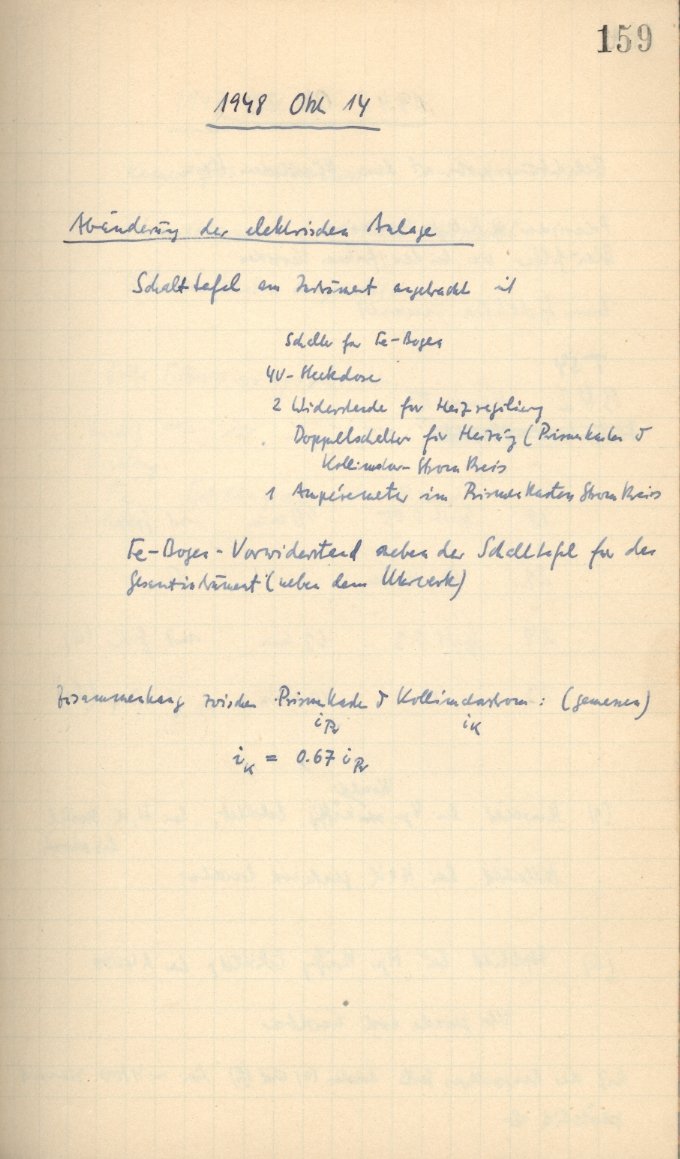 159
1948 Okt 14
Abänderung der elektrischen Anlage
Schalttafel am Instrument angebracht mit
Schalter für Fe-Bogen
4V-Steckdose
2 Widerstände für Heizregulierung
Doppelschalter für Heizung (Prismenkasten &
Kollimator-Stromkreis
1 Ampèremeter im Prismenkasten Stromkreis
Fe-Bogen-Vorwiderstand neben der Schalttafel für das
Gesamtinstrument (neben dem Uhrwerk)
Zusammenhang zwischen Prismenkasten & Kollimatorstrom: (gemessen)
i_Pr i_K
i_K = 0.67 i_Pr